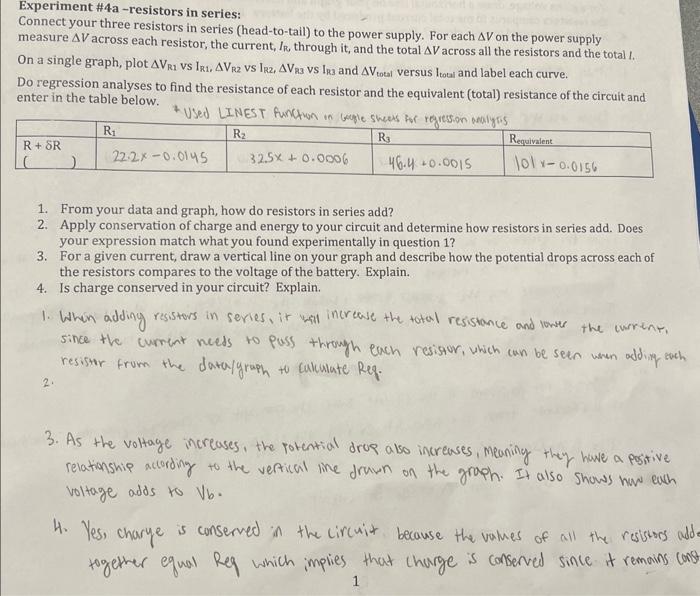 Experiment #4a –resistors in series:
Connect your three resistors in series (head-to-tail) to the power supply. For each ΔV on the power supply
measure ΔV across each resistor, the current, IR, through it, and the total ΔV across all the resistors and the total I.
On a single graph, plot ΔVR1 vs IR1, ΔVR2 vs IR2, ΔVR3 vs IR3 and ΔVtotal versus Itotal and label each curve.
Do regression analyses to find the resistance of each resistor and the equivalent (total) resistance of the circuit and
enter in the table below. * Used LINEST function in Google Sheets for regression analysis
R1 R2 R3 Requivalent
R + δR
( ) 22.2x - 0.0145 32.5x + 0.0006 46.4 + 0.0015 101x - 0.0156
1. From your data and graph, how do resistors in series add?
2. Apply conservation of charge and energy to your circuit and determine how resistors in series add. Does
your expression match what you found experimentally in question 1?
3. For a given current, draw a vertical line on your graph and describe how the potential drops across each of
the resistors compares to the voltage of the battery. Explain.
4. Is charge conserved in your circuit? Explain.
1. When adding resistors in series, it will increase the total resistance and lower the current,
since the current needs to pass through each resistor, which can be seen when adding each
resistor from the data/graph to calculate Req.
2.
3. As the voltage increases, the potential drop also increases, meaning they have a positive
relationship according to the vertical line drawn on the graph. It also shows how each
voltage adds to Vb.
4. Yes, charge is conserved in the circuit because the values of all the resistors adde
together equal Req which implies that charge is conserved since it remains const
1